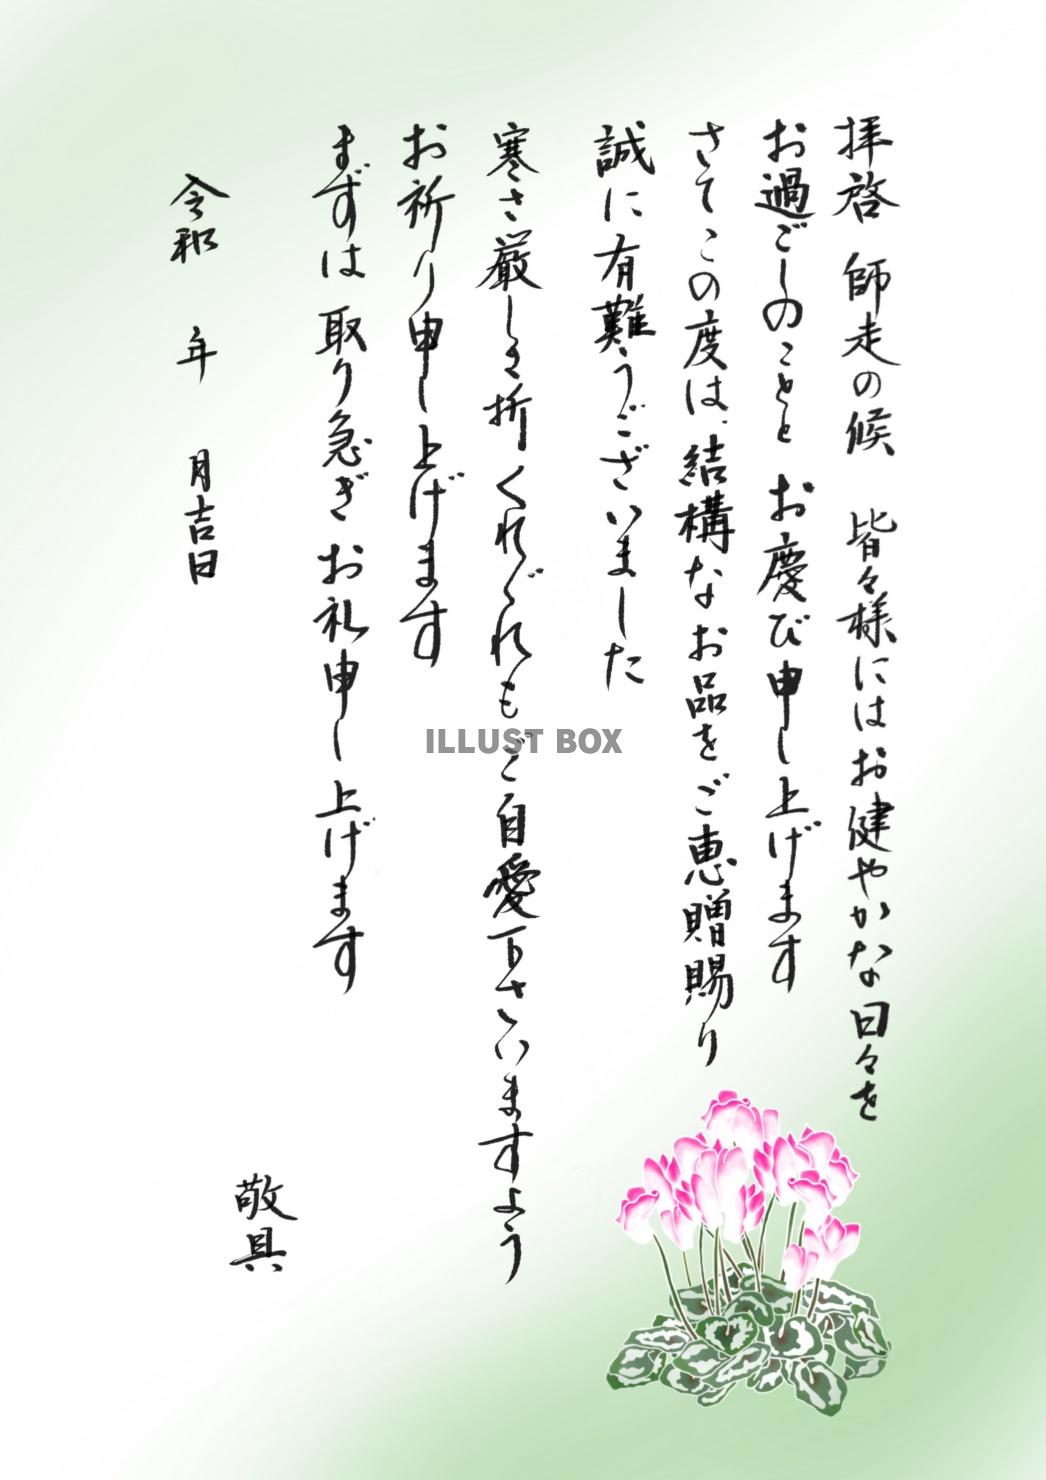 拝啓 師走の候 皆々様にはお健やかな日々を
お過ごしのことと お慶び申し上げます
さてこの度は、結構なお品をご恵贈賜り
誠に有難うございました
寒さ厳しき折 くれぐれもご自愛下さいますよう
お祈り申し上げます
まずは 取り急ぎ お礼申し上げます
令和 年 月吉日
敬具
ILLUST BOX